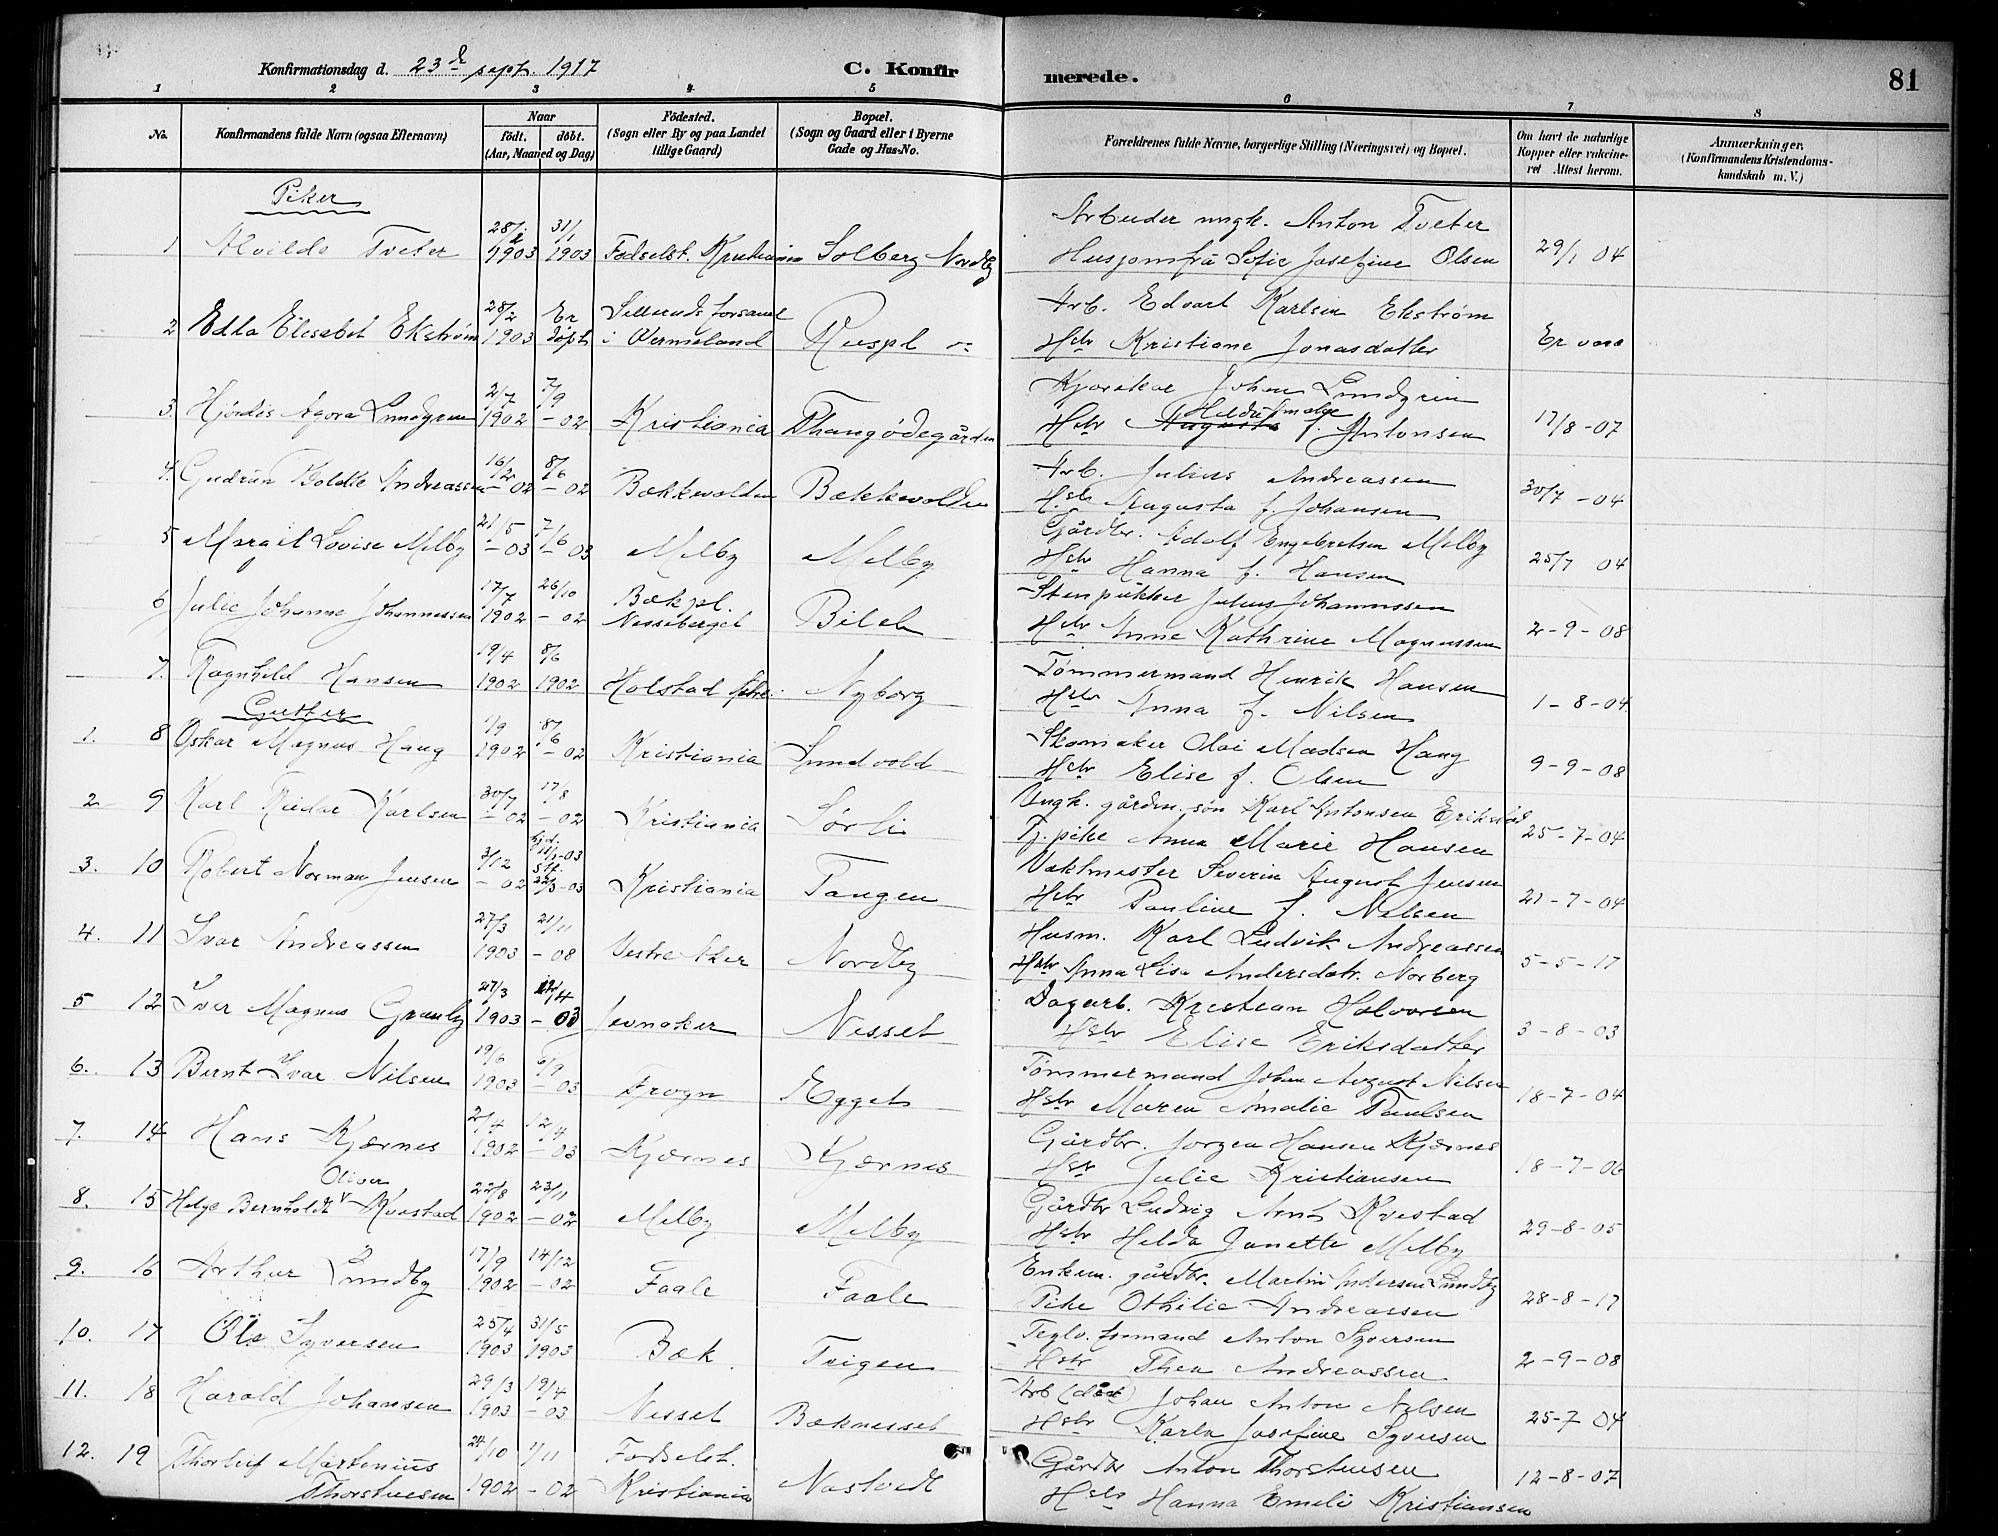 Konfirmationsdag d. 23de sept. 1917
C. Konfir merede.
81
1 2 3 4 5 6 7 8
No.
Konfirmandens fulde Navn (ogsaa Efternavn)
Naar
født. døbt.
(Aar, Maaned og Dag)
Fødested.
(Sogn eller By og paa Landet
tillige Gaard)
Bopæl.
(Sogn og Gaard eller i Byerne
Gade og Hus-No.
Forældrenes fulde Navne, borgerlige Stilling (Næringsvei) og Bopæl.
Om havt de naturlige
Kopper eller vakcine-
ret Attest herom.
Anmærkninger.
(Konfirmandens Kristendoms-
kundskab m. V.)
Piker
28/1 31/1 Arbeider ungk. Anton Tveter
1 Alvilde Tveter 1903 1903 Fødselst. Kristiania Solberg Nordby Husjomfru Sofie Josefine Olsen 29/1 04
28/2 Er Sillerud forsaml Arb. Edvart Karlsen Ekstrøm
2 Edla Elisabet Ekstrøm 1903 døpt i Vermeland Huspl Hstr Kristiane Jonasdatter Er vacc
2/7 7/9 Kjørekar Johan Lundgren
3. Hjørdis Agora Lundgren 1902 -02 Kristiania Thangødegården Hstr Augusta f. Antonsen 17/8 -07
16/2 8/6 Arb. Julius Andreassen
4. Gudrun Boldie Andreassen -02 -02 Bækkevolden Bækkevolden Hstr Augusta f. Johansen 30/7 -04
21/5 7/6 Gårdbr. Adolf Engebretsen Melby
5 Margit Lovise Melby -03 -03 Melby Melby Hstr Hanna f. Hansen 25/7 04
17/7 26/10 Bækpl. Stenpukker Julius Johannessen
6 Julie Johanne Johannessen 1902 -02 Nesseberget Bilet Hstr Anne Kathrine Magnussen 2-9-08
19/4 8/6 Tømmermand Henrik Hansen
7. Ragnhild Hansen 1902 1902 Holstad Nyborg Hstr Anna f. Nilsen 1-8-04
Gutter
1/9 8/6 Skomaker Olai Madsen Haug
1. 8 Oskar Magnus Haug 1902 -02 Kristiania Sundvold Hstr Elise f. Olsen 9-9-08
30/7 17/8 Ungk. gårdm. søn Karl Antonsen Erikstad
2 9 Karl Reidar Karlsen -02 -02 Kristiania Sørli Tj. pike Anna Marie Hansen 25-7-04
3/12 hjd. 11/1-03 Vaktmester Severin August Jensen
3. 10 Robert Norman Jensen -02 stf. 22/3-03 Kristiania Tangen Hstr Pauline f. Nelsen 21-7-04
27/3 21/11 Husm. Karl Ludvik Andreassen
4. 11 Ivar Andreassen 1903 -08 Vestre Aker Nordby Hstr Anna Lisa Andersdatr. Norberg 5-5-17
27/3 12/4 Dagarb. Kristian Halvorsen
5 12 Iver Magnus Granby 1903 -03 Jevnaker Nesset Hstr Elise Eriksdatter 3-8-03
19/6 6/9 Tømmermand Johan August Nilsen
6. 13 Bernt Ivar Nilsen 1903 -03 Frogn Egget Hstr Maren Amalie Paulsen 18-7-04
2/4 12/4 Gårdbr. Jørgen Hansen Kjærnes
7. 14 Hans Kjærnes 1902 -03 Kjærnes Kjærnes Hstr Julie Kristiansen 18-7-06
Oliver 22/8 23/11 Gårdbr Ludvig Arnt Kvestad
8. 15 Helge Bernholdt Kvestad 1902 -02 Melby Melby Hstr Helda Janette Melby 29-8-05
17/9 14/12 Enkem. gårdbr. Martin Andersen Lundby
9. 16 Arthur Lundby 1902 -02 Faale Faale Pike Othilie Andreassen 28-8-17
25/4 31/5 Teglv. formand Anton Syversen
10. 17 Ole Syversen 1903 1903 Bæk. Teigen Hstr Thea Andreassen 2-9-08
29/3 19/4 Arb (død) Johan Anton Nelsen
11. 18 Harald Johansen 1903 -03 Nesset Bæknesset Hstr Karla Josefine Syversen 25-7 04
24/10 1/11 Fødselst. Gårdbr Anton Thorstensen
12. 19 Thorleif Martenius Thorstensen 1902 -02 Kristiania Nastvedt Hstr Hanna Emeli Kristiansen 12-8-07